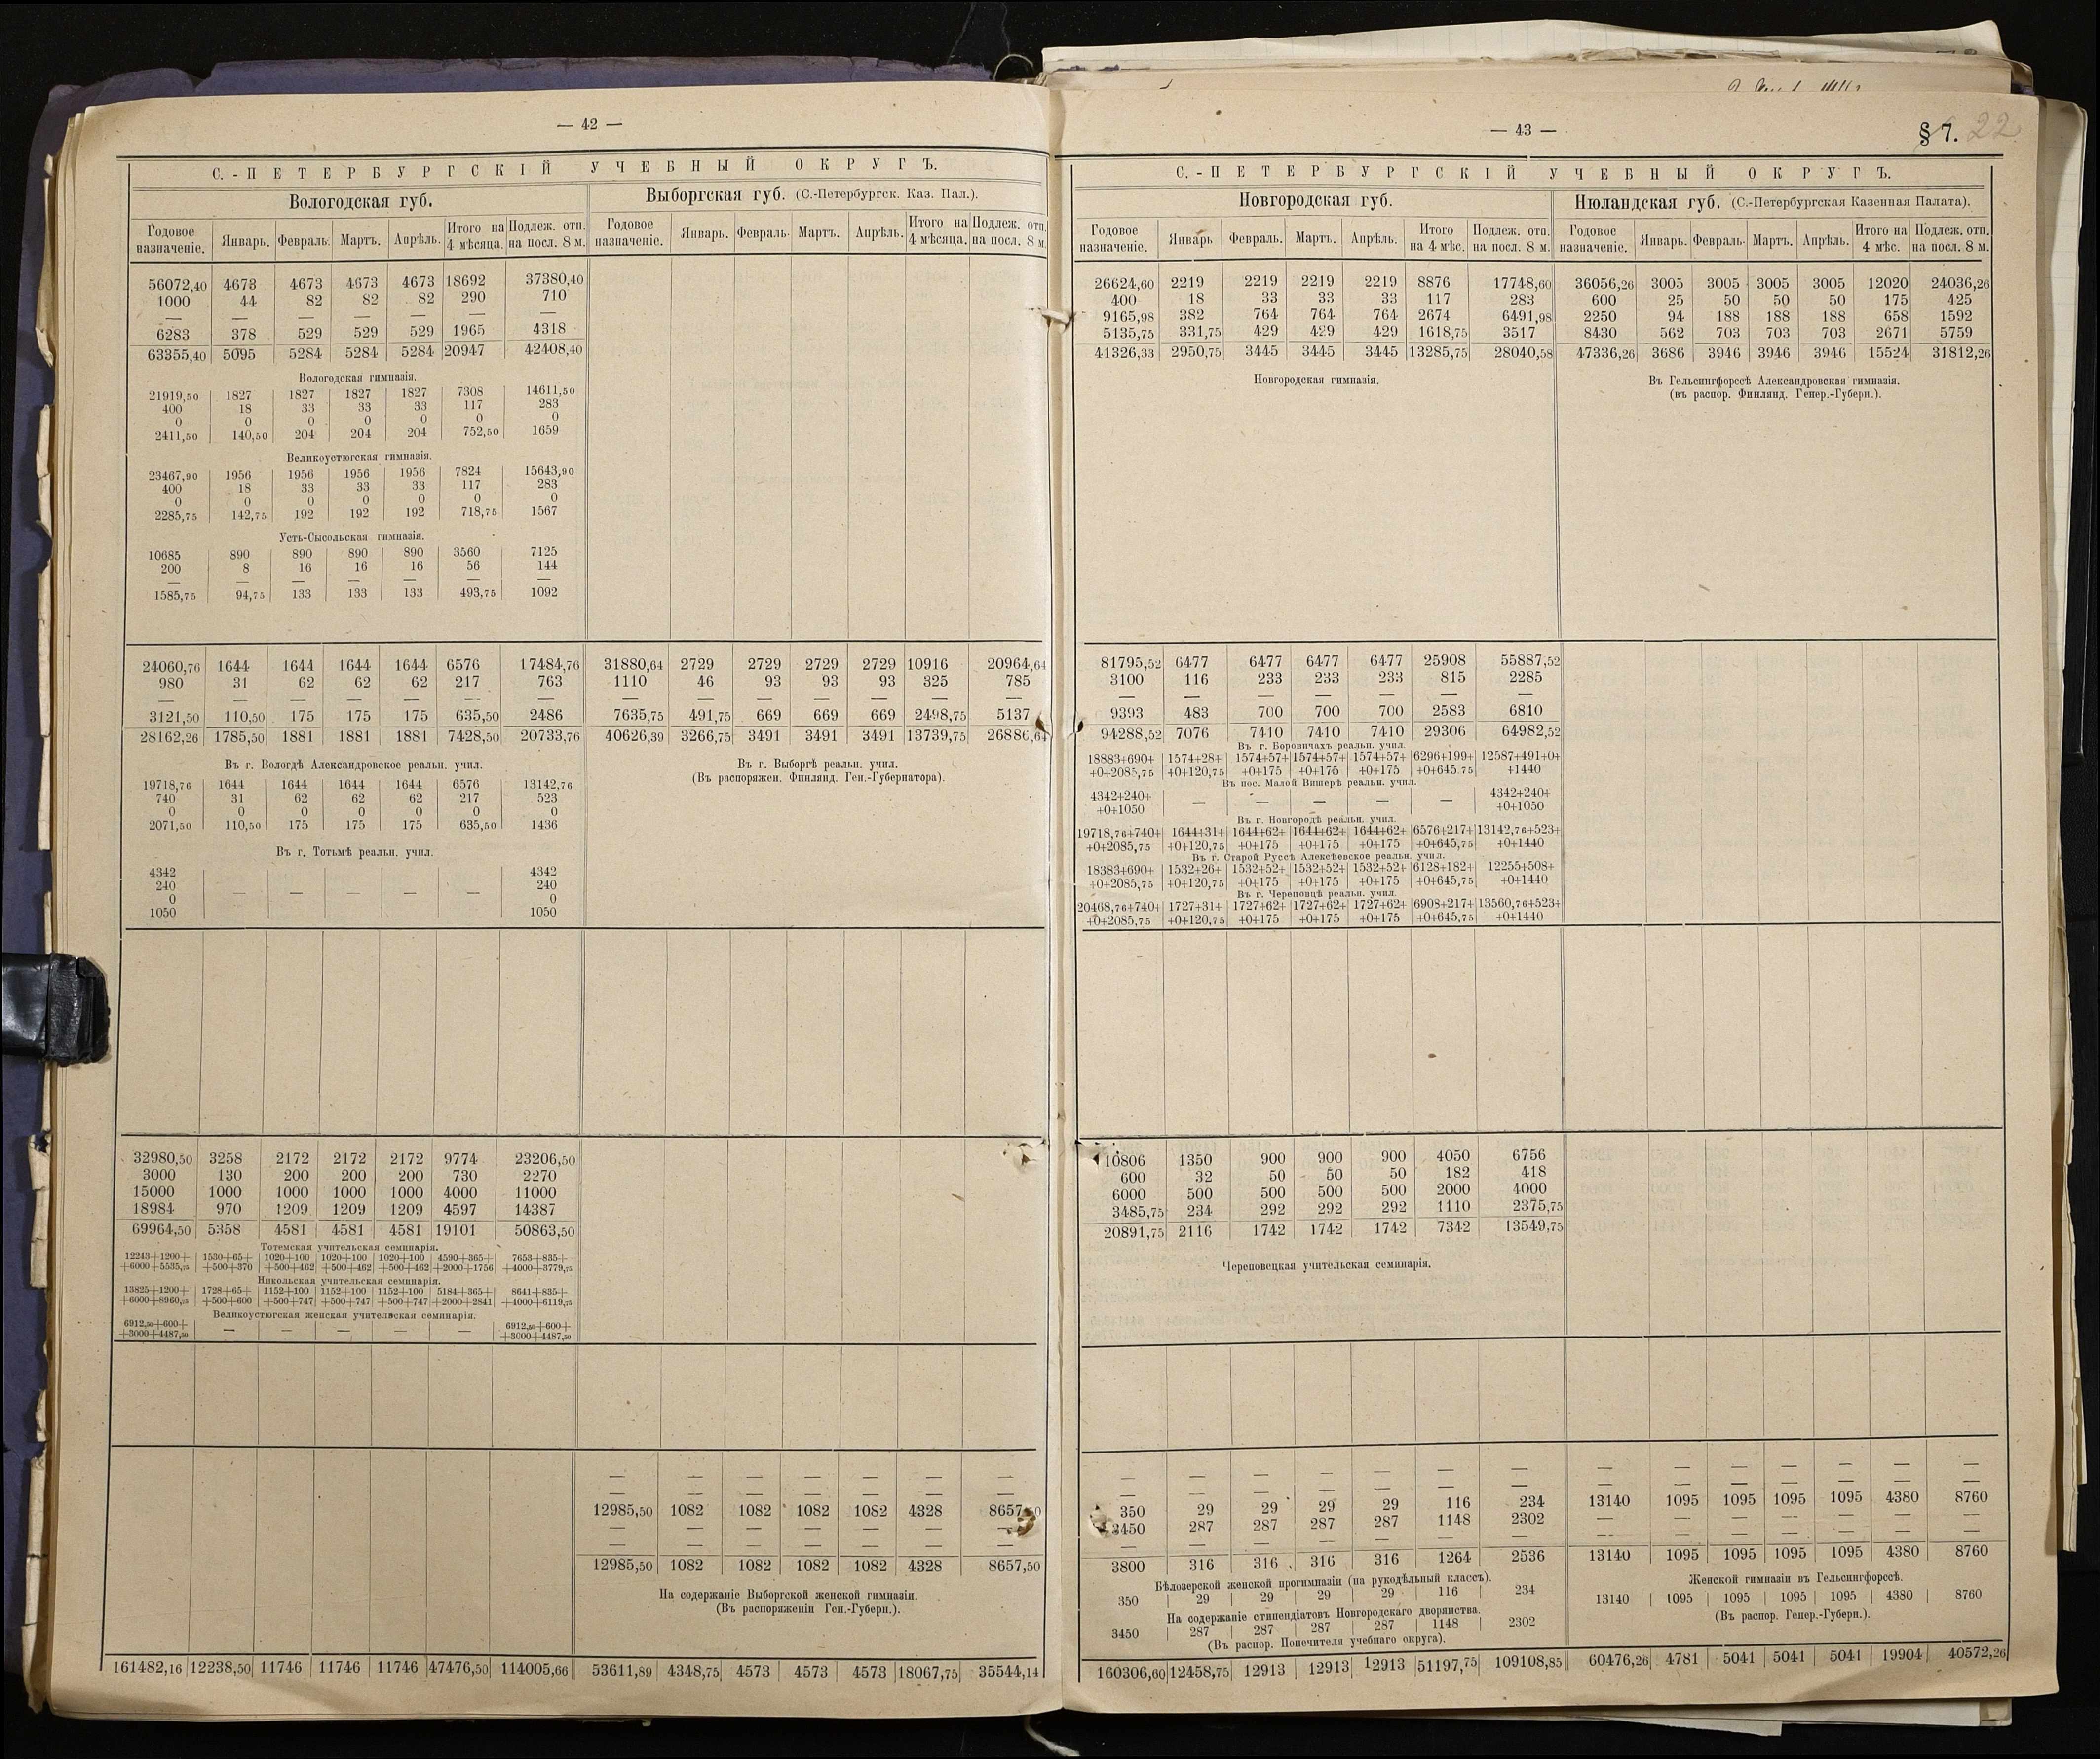 — 42 —
С.-ПЕТЕРБУРГСКІЙ УЧЕБНЫЙ ОКРУГЪ.
Вологодская губ. Выборгская губ. (С.-Петербургск. Каз. Пал.).
Годовое назначеніе. Январь. Февраль. Мартъ. Апрѣль. Итого на 4 мѣсяца. Подлеж. отп. на посл. 8 м. Годовое назначеніе. Январь. Февраль. Мартъ. Апрѣль. Итого на 4 мѣсяца. Подлеж. отп. на посл. 8 м.
56072,40 4673 4673 4673 4673 18692 37380,40
1000 44 82 82 82 290 710
— — — — — — —
6283 378 529 529 529 1965 4318
63355,40 5095 5284 5284 5284 20947 42408,40
Вологодская гимназія.
21919,50 1827 1827 1827 1827 7308 14611,50
400 18 33 33 33 117 283
0 0 0 0 0 0 0
2411,50 140,50 204 204 204 752,50 1659
Великоустюгская гимназія.
23467,90 1956 1956 1956 1956 7824 15643,90
400 18 33 33 33 117 283
0 0 0 0 0 0 0
2285,75 142,75 192 192 192 718,75 1567
Усть-Сысольская гимназія.
10685 890 890 890 890 3560 7125
200 8 16 16 16 56 144
— — — — — — —
1585,75 94,75 133 133 133 493,75 1092
24060,76 1644 1644 1644 1644 6576 17484,76 31880,64 2729 2729 2729 2729 10916 20964,64
980 31 62 62 62 217 763 1110 46 93 93 93 325 785
— — — — — — — — — — — — — —
3121,50 110,50 175 175 175 635,50 2486 7635,75 491,75 669 669 669 2498,75 5137
28162,26 1785,50 1881 1881 1881 7428,50 20733,76 40626,39 3266,75 3491 3491 3491 13739,75 26886,64
Въ г. Вологдѣ Александровское реальн. учил. Въ г. Выборгѣ реальн. учил.
(Въ распоряжен. Финлянд. Ген.-Губернатора).
19718,76 1644 1644 1644 1644 6576 13142,76
740 31 62 62 62 217 523
0 0 0 0 0 0 0
2071,50 110,50 175 175 175 635,50 1436
Въ г. Тотьмѣ реальн. учил.
4342 4342
240 — — — — — 240
0 0
1050 1050
32980,50 3258 2172 2172 2172 9774 23206,50
3000 130 200 200 200 730 2270
15000 1000 1000 1000 1000 4000 11000
18984 970 1209 1209 1209 4597 14387
69964,50 5358 4581 4581 4581 19101 50863,50
Тотемская учительская семинарія.
12243+1200+ 1530+65+ 1020+100 1020+100 1020+100 4590+365+ 7653+835+
+6000+5535,75 +500+370 +500+462 +500+462 +500+462 +2000+1756 +4000+3779,75
Никольская учительская семинарія.
13825+1200+ 1728+65+ 1152+100 1152+100 1152+100 5184+365+ 8641+835+
+6000+8960,75 +500+600 +500+747 +500+747 +500+747 +2000+2841 +4000+6119,75
Великоустюгская женская учительская семинарія.
6912,50+600+ — — — — — 6912,50+600+
+3000+4487,50 +3000+4487,50
— — — — — — —
— — — — — — —
12985,50 1082 1082 1082 1082 4328 8657,50
— — — — — — —
— — — — — — —
12985,50 1082 1082 1082 1082 4328 8657,50
На содержаніе Выборгской женской гимназіи.
(Въ распоряженіи Ген.-Губерн.).
161482,16 12238,50 11746 11746 11746 47476,50 114005,66 53611,89 4348,75 4573 4573 4573 18067,75 35544,14
— 43 —
§ 7. 22
С.-ПЕТЕРБУРГСКІЙ УЧЕБНЫЙ ОКРУГЪ.
Новгородская губ. Нюландская губ. (С.-Петербургская Казенная Палата).
Годовое назначеніе. Январь Февраль. Мартъ. Апрѣль. Итого на 4 мѣс. Подлеж. отп. на посл. 8 м. Годовое назначеніе. Январь. Февраль. Мартъ. Апрѣль. Итого на 4 мѣс. Подлеж. отп. на посл. 8 м.
26624,60 2219 2219 2219 2219 8876 17748,60 36056,26 3005 3005 3005 3005 12020 24036,26
400 18 33 33 33 117 283 600 25 50 50 50 175 425
9165,98 382 764 764 764 2674 6491,98 2250 94 188 188 188 658 1592
5135,75 331,75 429 429 429 1618,75 3517 8430 562 703 703 703 2671 5759
41326,33 2950,75 3445 3445 3445 13285,75 28040,58 47336,26 3686 3946 3946 3946 15524 31812,26
Новгородская гимназія. Въ Гельсингфорссѣ Александровская гимназія.
(въ распор. Финлянд. Генер.-Губерн.).
81795,52 6477 6477 6477 6477 25908 55887,52
3100 116 233 233 233 815 2285
— — — — — — —
9393 483 700 700 700 2583 6810
94288,52 7076 7410 7410 7410 29306 64982,52
Въ г. Боровичахъ реальн. учил.
18883+690+ 1574+28+ 1574+57+ 1574+57+ 1574+57+ 6296+199+ 12587+491+0+
+0+2085,75 +0+120,75 +0+175 +0+175 +0+175 +0+645.75 +1440
Въ пос. Малой Вишерѣ реальн. учил.
4342+240+ — — — — — 4342+240+
+0+1050 +0+1050
Въ г. Новгородѣ реальн. учил.
19718,76+740+ 1644+31+ 1644+62+ 1644+62+ 1644+62+ 6576+217+ 13142,76+523+
+0+2085,75 +0+120,75 +0+175 +0+175 +0+175 +0+645,75 +0+1440
Въ г. Старой Руссѣ Алексѣевское реальн. учил.
18383+690+ 1532+26+ 1532+52+ 1532+52+ 1532+52+ 6128+182+ 12255+508+
+0+2085,75 +0+120,75 +0+175 +0+175 +0+175 +0+645,75 +0+1440
Въ г. Череповцѣ реальн. учил.
20468,76+740+ 1727+31+ 1727+62+ 1727+62+ 1727+62+ 6908+217+ 13560,76+523+
+0+2085,75 +0+120,75 +0+175 +0+175 +0+175 +0+645,75 +0+1440
10806 1350 900 900 900 4050 6756
600 32 50 50 50 182 418
6000 500 500 500 500 2000 4000
3485,75 234 292 292 292 1110 2375,75
20891,75 2116 1742 1742 1742 7342 13549,75
Череповецкая учительская семинарія.
— — — — — — — — — — — — — —
— — — — — — — — — — — — — —
350 29 29 29 29 116 234 13140 1095 1095 1095 1095 4380 8760
3450 287 287 287 287 1148 2302 — — — — — — —
— — — — — — — — — — — — — —
3800 316 316 316 316 1264 2536 13140 1095 1095 1095 1095 4380 8760
Бѣлозерской женской прогимназіи (на рукодѣльный классъ). Женской гимназіи въ Гельсингфорссѣ.
350 29 29 29 29 116 234 13140 1095 1095 1095 1095 4380 8760
На содержаніе стипендіатовъ Новгородскаго дворянства. (Въ распор. Генер.-Губерн.).
3450 287 287 287 287 1148 2302
(Въ распор. Попечителя учебнаго округа).
160306,60 12458,75 12913 12913 12913 51197,75 109108,85 60476,26 4781 5041 5041 5041 19904 40572,26